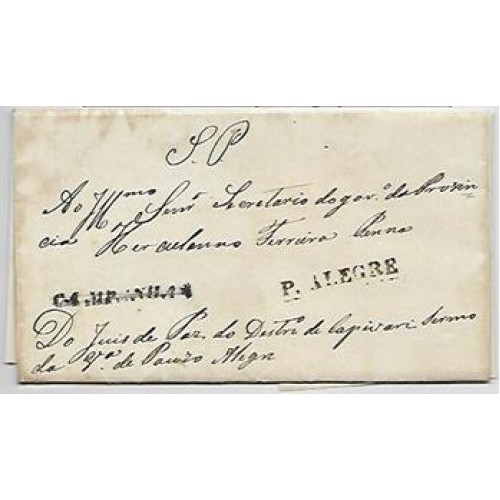 S. P.
Ao Illmo Senr Secretario do gor.o da Provin
cia Herculanno Ferreira Penna
CAMPANHA
P. ALEGRE
Do Juis de Paz do Destro de Capivari termo
da Va de Pouzo Alegre